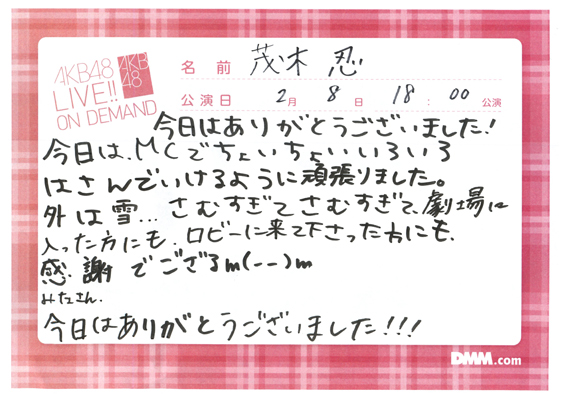 AKB48
LIVE!!
ON DEMAND
AKB
48
名前 茂木 忍
公演日 2月 8日 18:00 公演
今日はありがとうございました!
今日は、MCでちょいちょいいろいろ
はさんでいけるように頑張りました。
外は雪... さむすぎてさむすぎて、劇場に
入った方にも、ロビーに来て下さった方にも、
感謝でござるm(--)m
みなさん、
今日はありがとうございました!!!
DMM.com